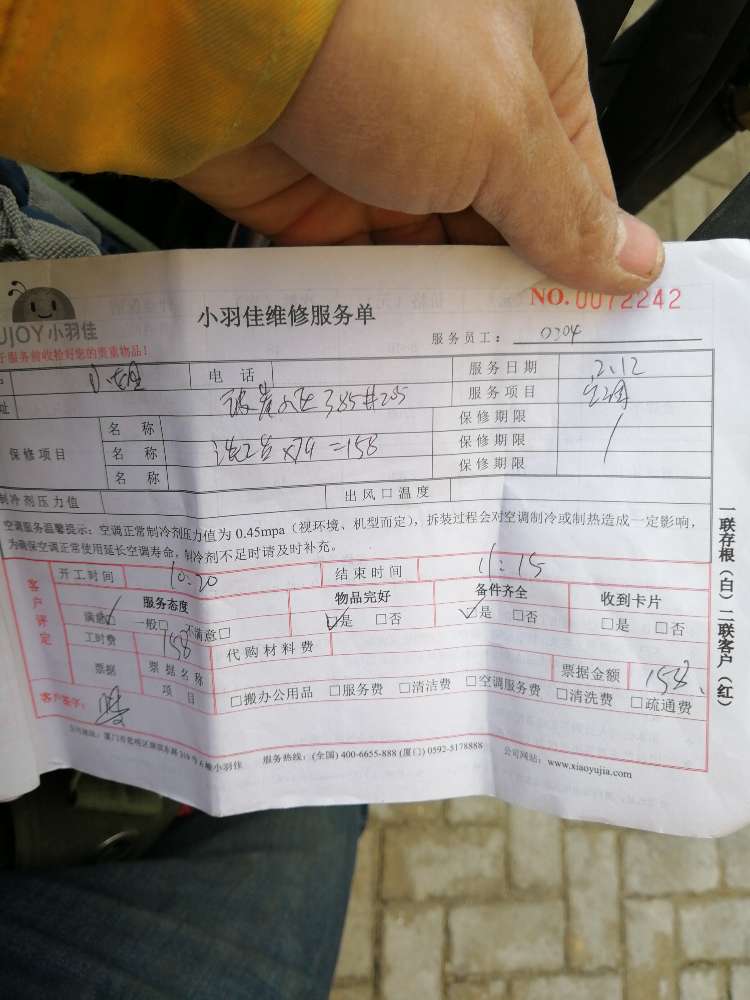 NO.0072242
小羽佳维修服务单
UJOY小羽佳
服务员工： 0304
于服务前收拾好您的贵重物品！
电 话 服务日期 2.12
址 385#205 服务项目 空调
保修项目 名 称 保修期限 /
名 称 ×79=158 保修期限
名 称 保修期限
制冷剂压力值 出风口温度
空调服务温馨提示：空调正常制冷剂压力值为 0.45mpa（视环境、机型而定），拆装过程会对空调制冷或制热造成一定影响，
为确保空调正常使用延长空调寿命，制冷剂不足时请及时补充。
客户评定
开工时间 10:20 结束时间 11:15
服务态度 物品完好 备件齐全 收到卡片
满意☑ 一般□ 不满意□ ☑是 □否 ☑是 □否 □是 □否
工时费 158 代购材料费
票据 票据名称 票据金额 158
项 目 □搬办公用品 □服务费 □清洁费 □空调服务费 □清洗费 □疏通费
客户签字：
服务热线：(全国) 400-6655-888 (厦门) 0592-5178888 公司网站：www.xiaoyujia.com
一联存根（白）二联客户（红）